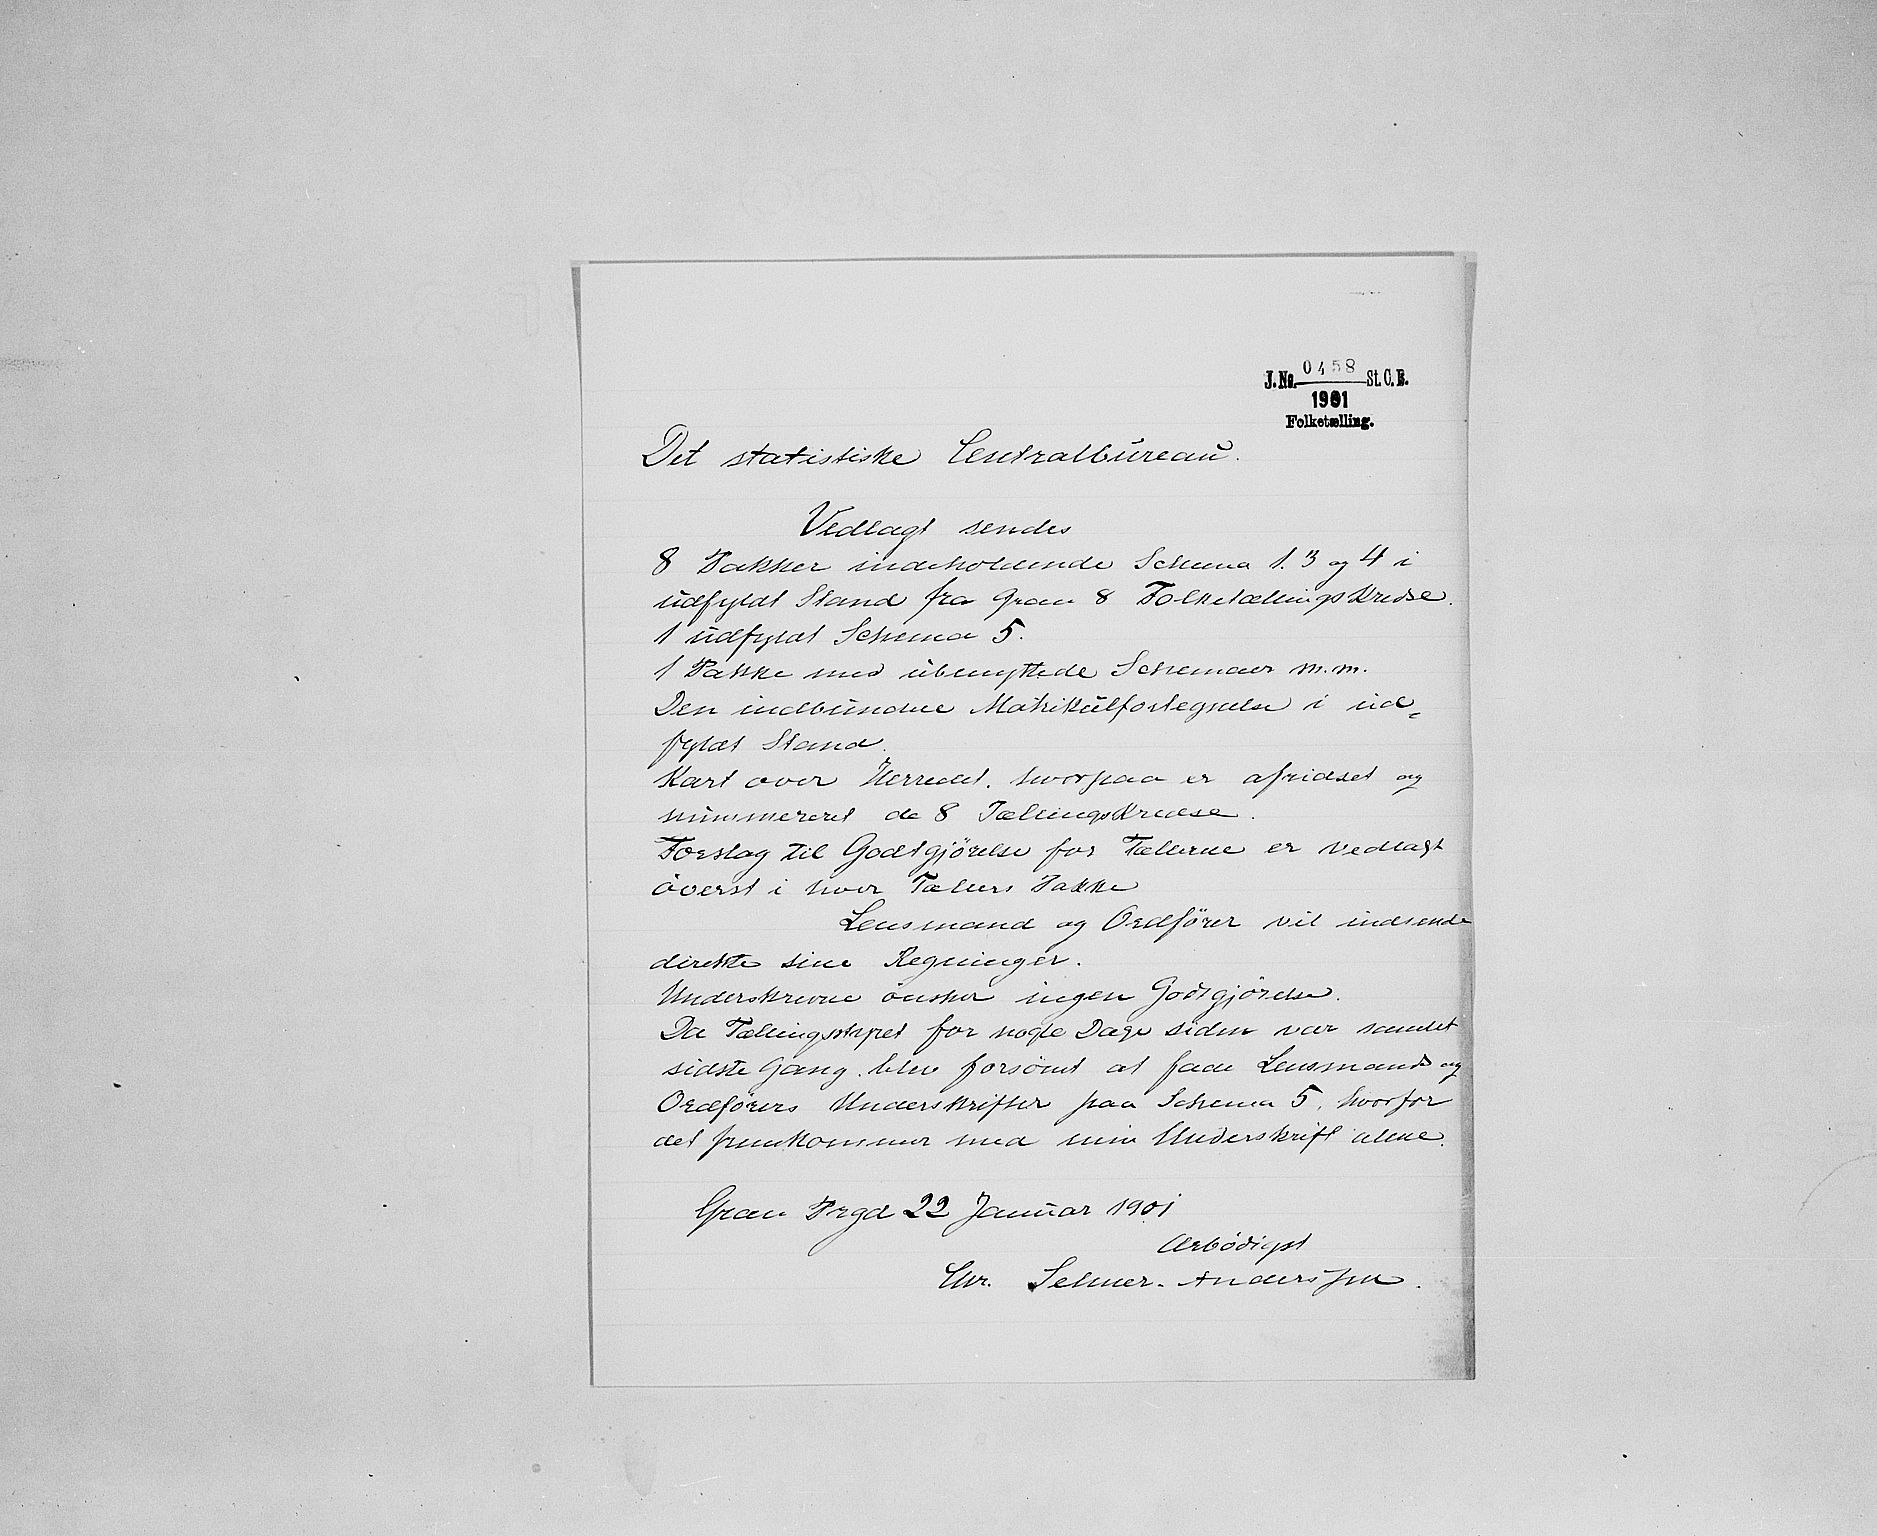 J.No. 0458 St.C.B.
1901
Folketælling.
Det statistiske Centralbureau.
Vedlagt sendes
8 Pakker indeholdende Schema 1. 3 og 4 i
udfyldt Stand fra Gran 8 Folketællingskredse.
1 udfyldt Schema 5.
1 Pakke med ubenyttede Schemaer m.m.
Den indbundne Matrikülfortegnelse i ud-
fyldt Stand.
Kart over Herredet, hvorpaa er afridset og
nummereret de 8 Tællingskredse.
Forslag til Godtgjörelse for Tællerne er vedlagt
överst i hver Tællers Pakke
Lensmand og Ordförer vil indsende
direkte sine Regninger.
Underskrevne önsker ingen Godtgjörelse.
Da Tællingsstyret for nogle Dage siden var samlet
sidste Gang, blev forsömt at faae Lensmands og
Ordförers Underskrifter paa Schema 5, hvorfor
det fremkommer med min Underskrift alene.
Gran Prgd 22 Januar 1901
Ærbödigst
Chr. Selmer-Anderssen.